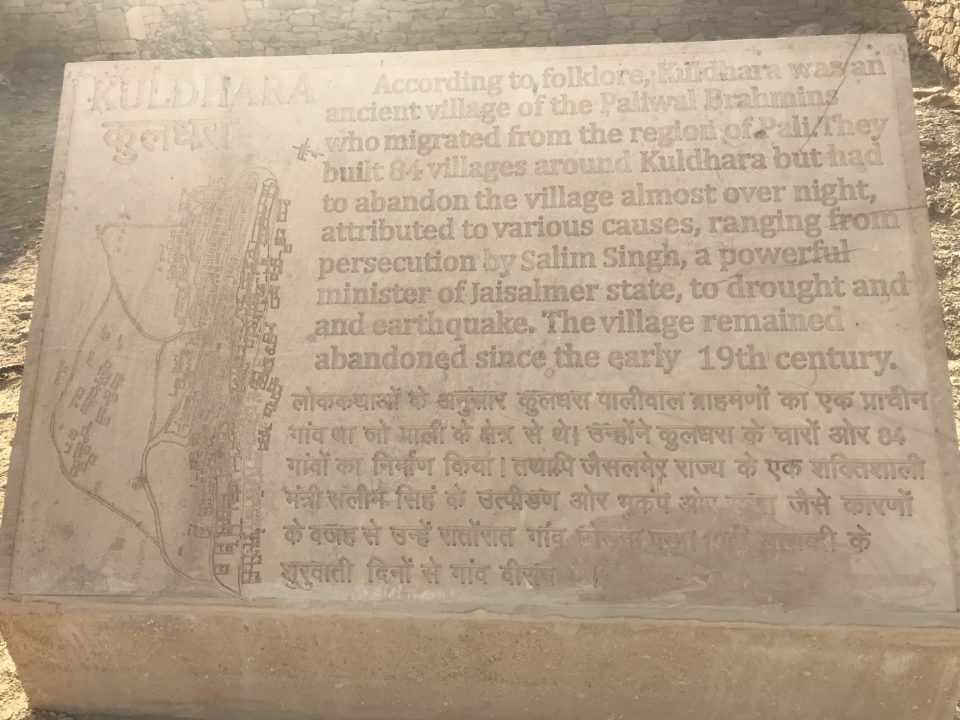 KULDHARA
कुलधरा
According to folklore, Kuldhara was an
ancient village of the Paliwal Brahmins
who migrated from the region of Pali. They
built 84 villages around Kuldhara but had
to abandon the village almost over night,
attributed to various causes, ranging from
persecution by Salim Singh, a powerful
minister of Jaisalmer state, to drought and
and earthquake. The village remained
abandoned since the early 19th century.
लोककथाओं के अनुसार कुलधरा पालीवाल ब्राहमणों का एक प्राचीन
गांव था जो पाली के क्षेत्र से थे। उन्होंने कुलधरा के चारों ओर 84
गांवों का निर्माण किया। तथापि जैसलमेर राज्य के एक शक्तिशाली
मंत्री सलीम सिहं के उत्पीडण ओर भूकंप ओर जैसे कारणों
के वजह से उन्हें रातोंरात गांव के
शुरुवाती दिनों से गांव वीरान